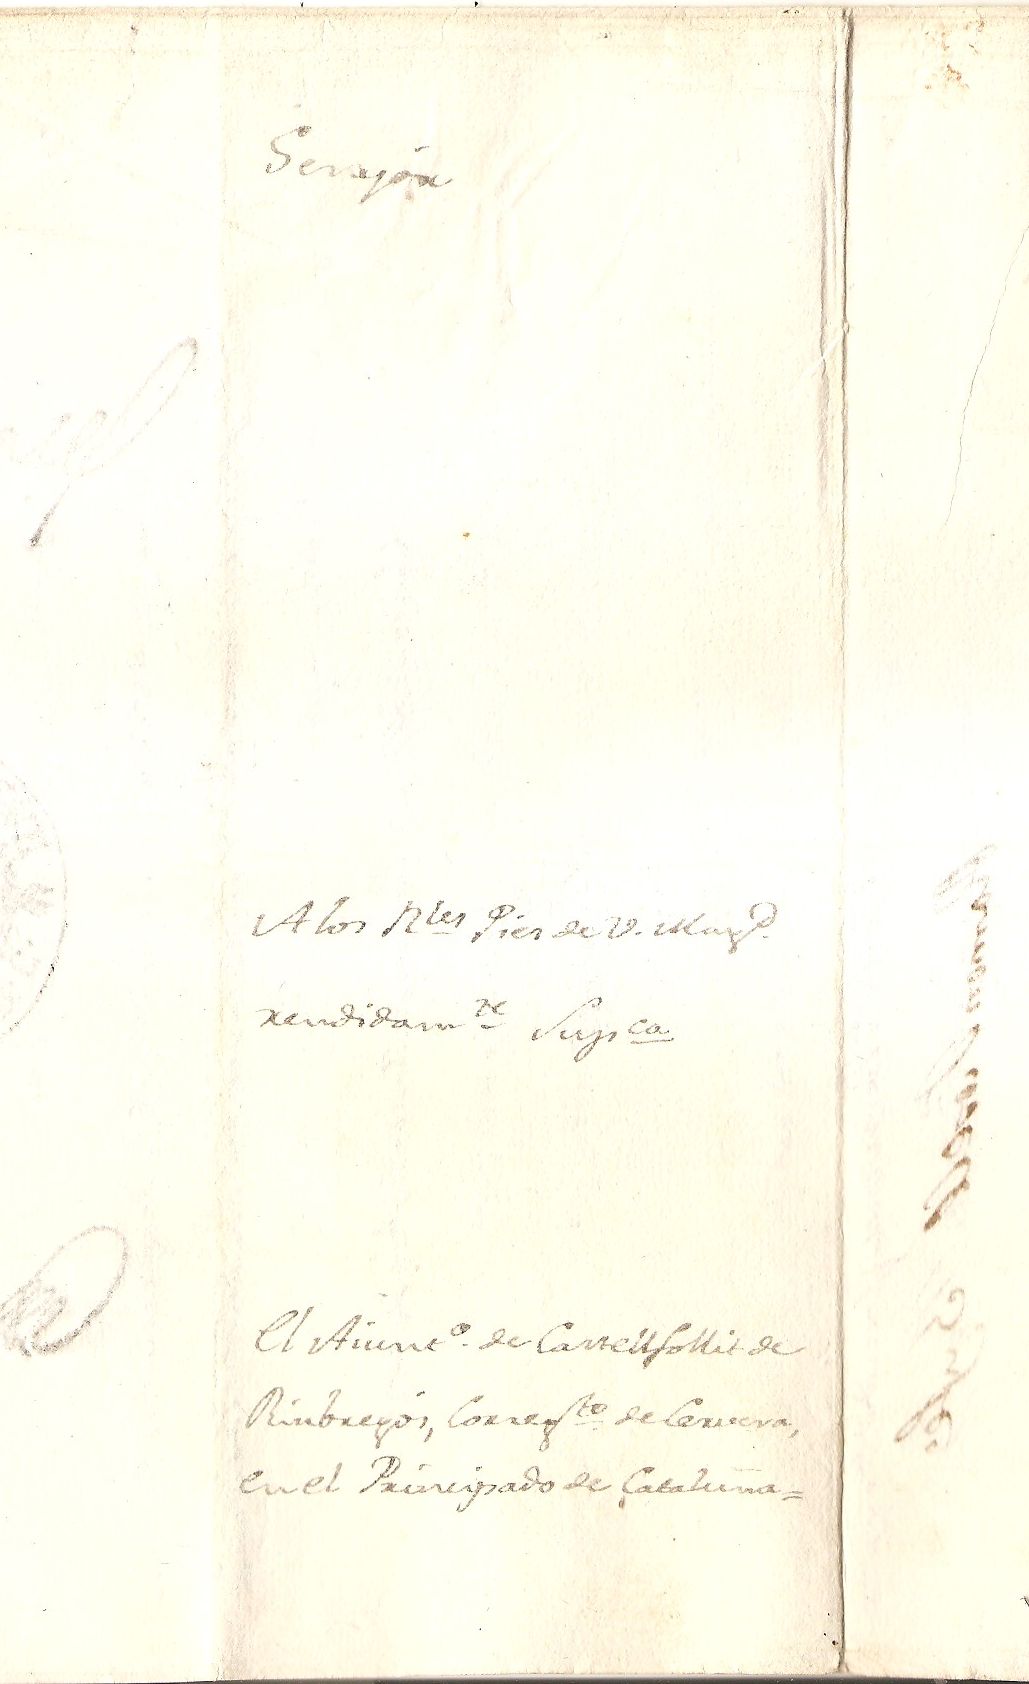 Señor
A los R.les Pies de V. Mag.d
rendidam.te Sup.ca
El Aiunt.o de Castellfollit de
Riubregós, Correg.to de Cervera,
en el Principado de Cataluña=